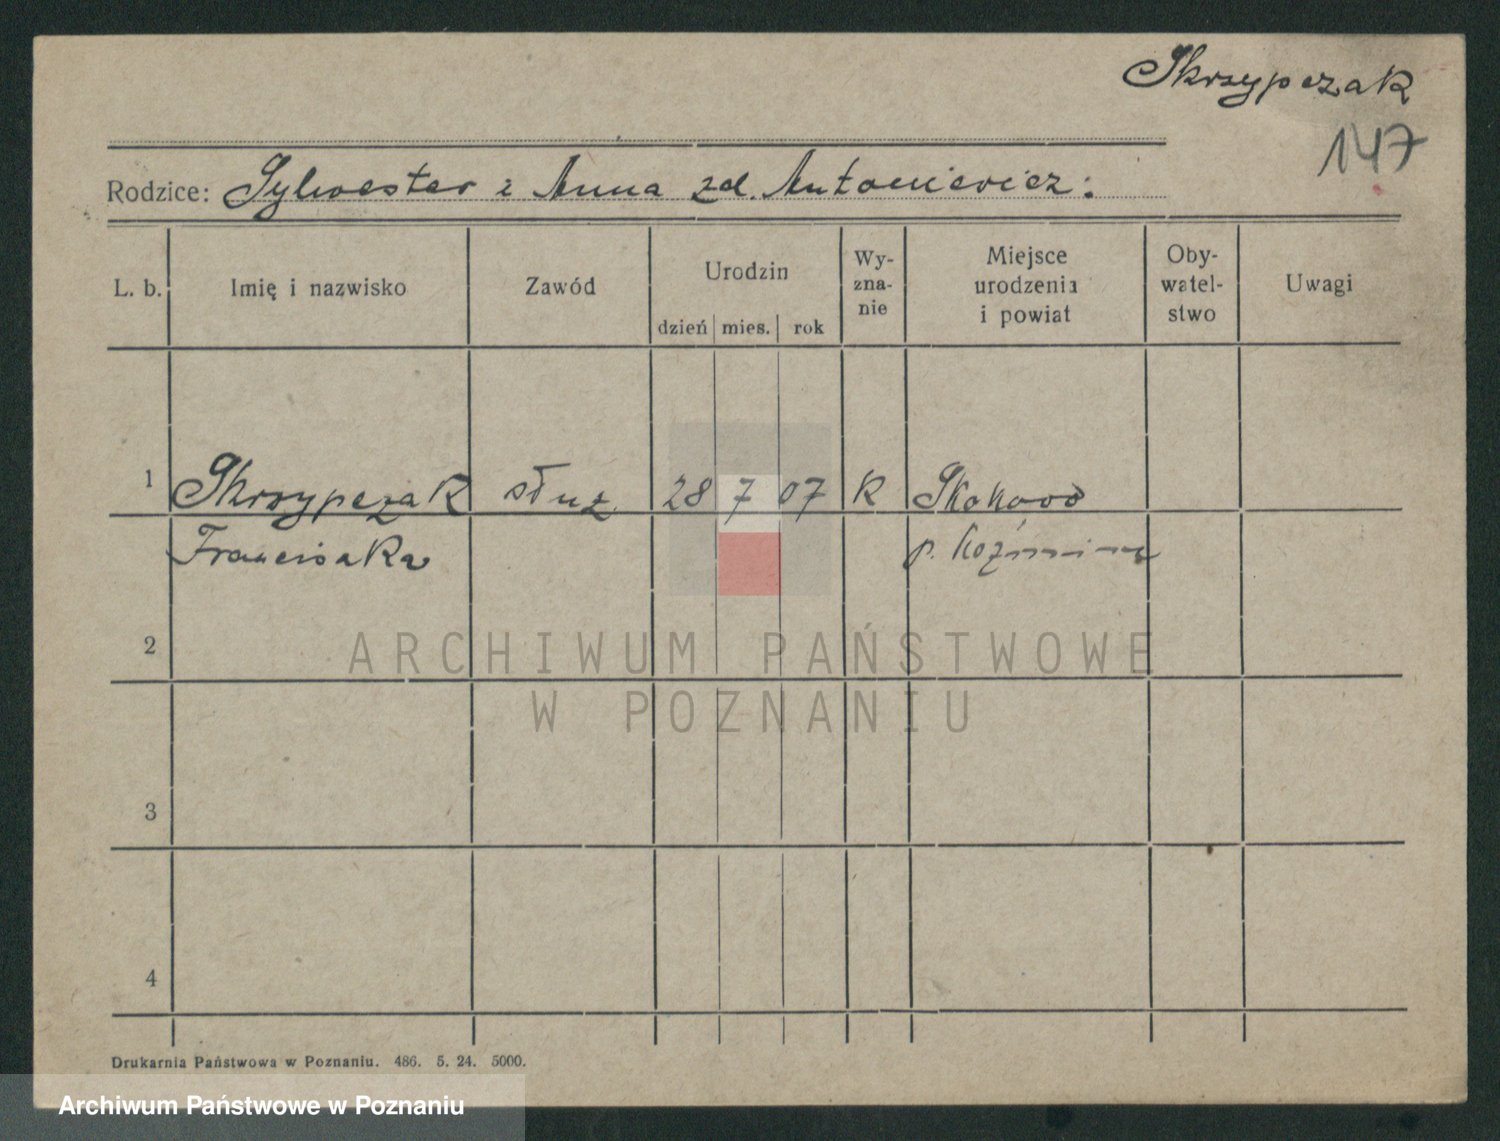 Skrzypczak
147
Rodzice: Sylwester i Anna zd. Antoniewicz.
L. b. Imię i nazwisko Zawód Urodzin dzień mies. rok Wy-zna-nie Miejsce urodzenia i powiat Oby-watel-stwo Uwagi
1 Skrzypczak służ. 28 7 07 K
Franciszka p. Koźmin
2
3
4
Drukarnia Państwowa w Poznaniu. 486. 5. 24. 5000.
ARCHIWUM PAŃSTWOWE
W POZNANIU
Archiwum Państwowe w Poznaniu